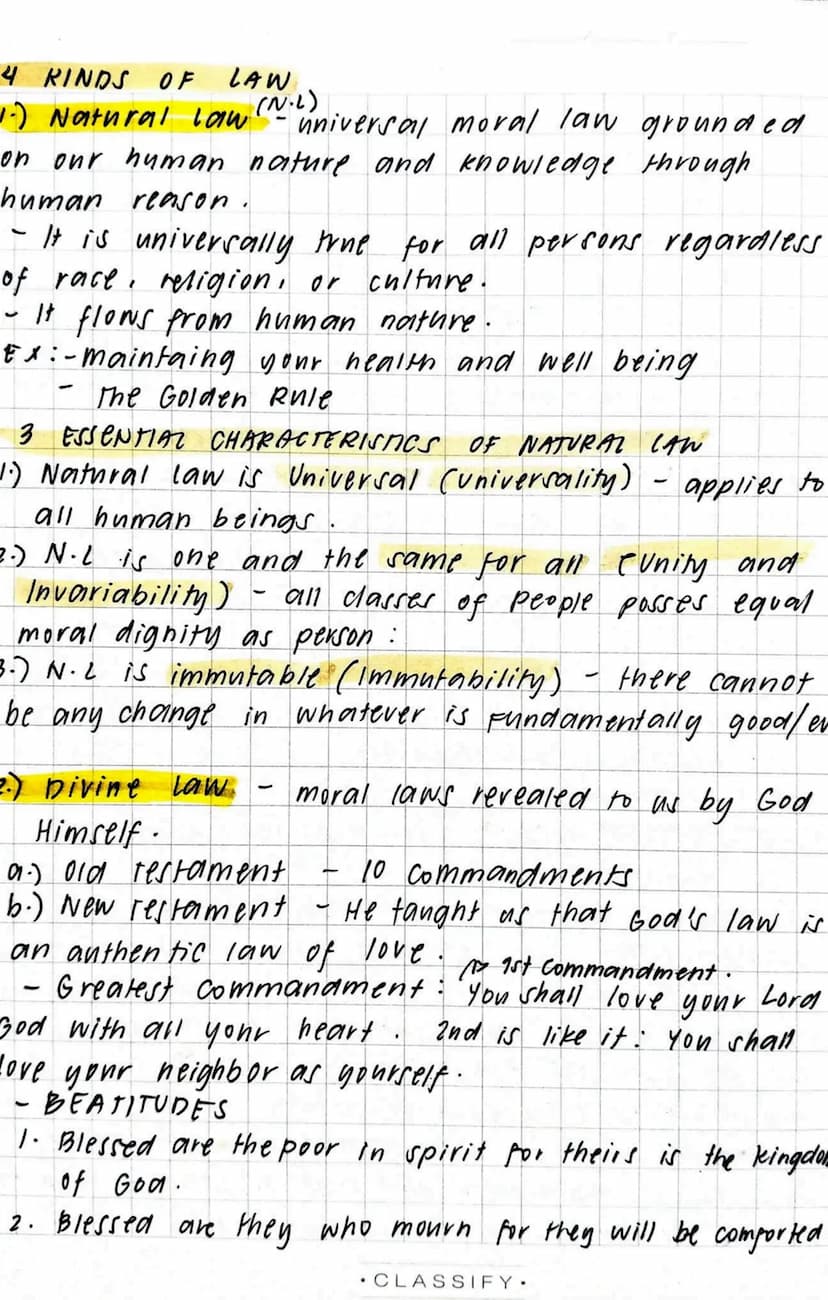 4 KINDS OF LAW
1.) Natural law (N.L) - universal moral law grounded
on our human nature and knowledge through
human reason.
- It is universally true for all persons regardless
of race, religion, or culture.
- It flows from human nature.
Ex:- maintaing your health and well being
- The Golden Rule
3 ESSENTIAL CHARACTERISTICS OF NATURAL LAW
1.) Natural law is Universal (universality) - applies to
all human beings.
2.) N.L is one and the same for all (Unity and
Invariability) - all classes of people posses equal
moral dignity as person:
3.) N.L is immutable (Immutability) - there cannot
be any change in whatever is fundamentally good/ev
2.) Divine law - moral laws revealed to us by God
Himself.
a.) Old Testament - 10 commandments
b.) New Testament - He taught us that God's law is
an authentic law of love.
1st Commandment.
- Greatest commandment: You shall love your Lord
God with all your heart. 2nd is like it: You shall
love your neighbor as yourself.
- BEATITUDES
1. Blessed are the poor in spirit for theirs is the kingdom
of God.
2. Blessed are they who mourn for they will be comforted
•CLASSIFY•